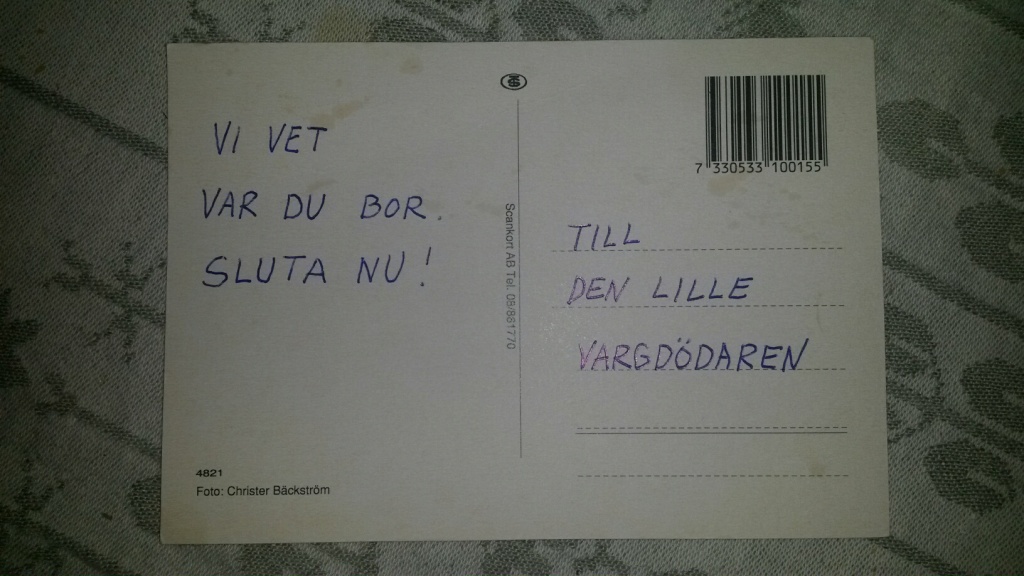 VI VET
VAR DU BOR.
SLUTA NU!
4821
Foto: Christer Bäckström
Scankort AB Tel. 08/881770
7 330533 100155
TILL
DEN LILLE
VARGDÖDAREN